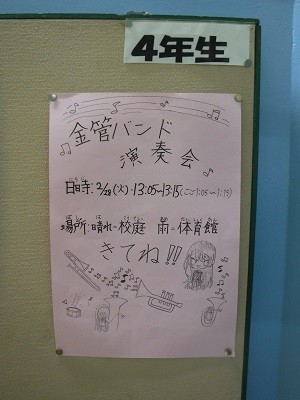 4年生
金管バンド
演奏会
日時:2/28(火)-13:05~13:15(ごご1:05~1:15)
場所:晴れ-校庭 雨-体育館
きてね!!